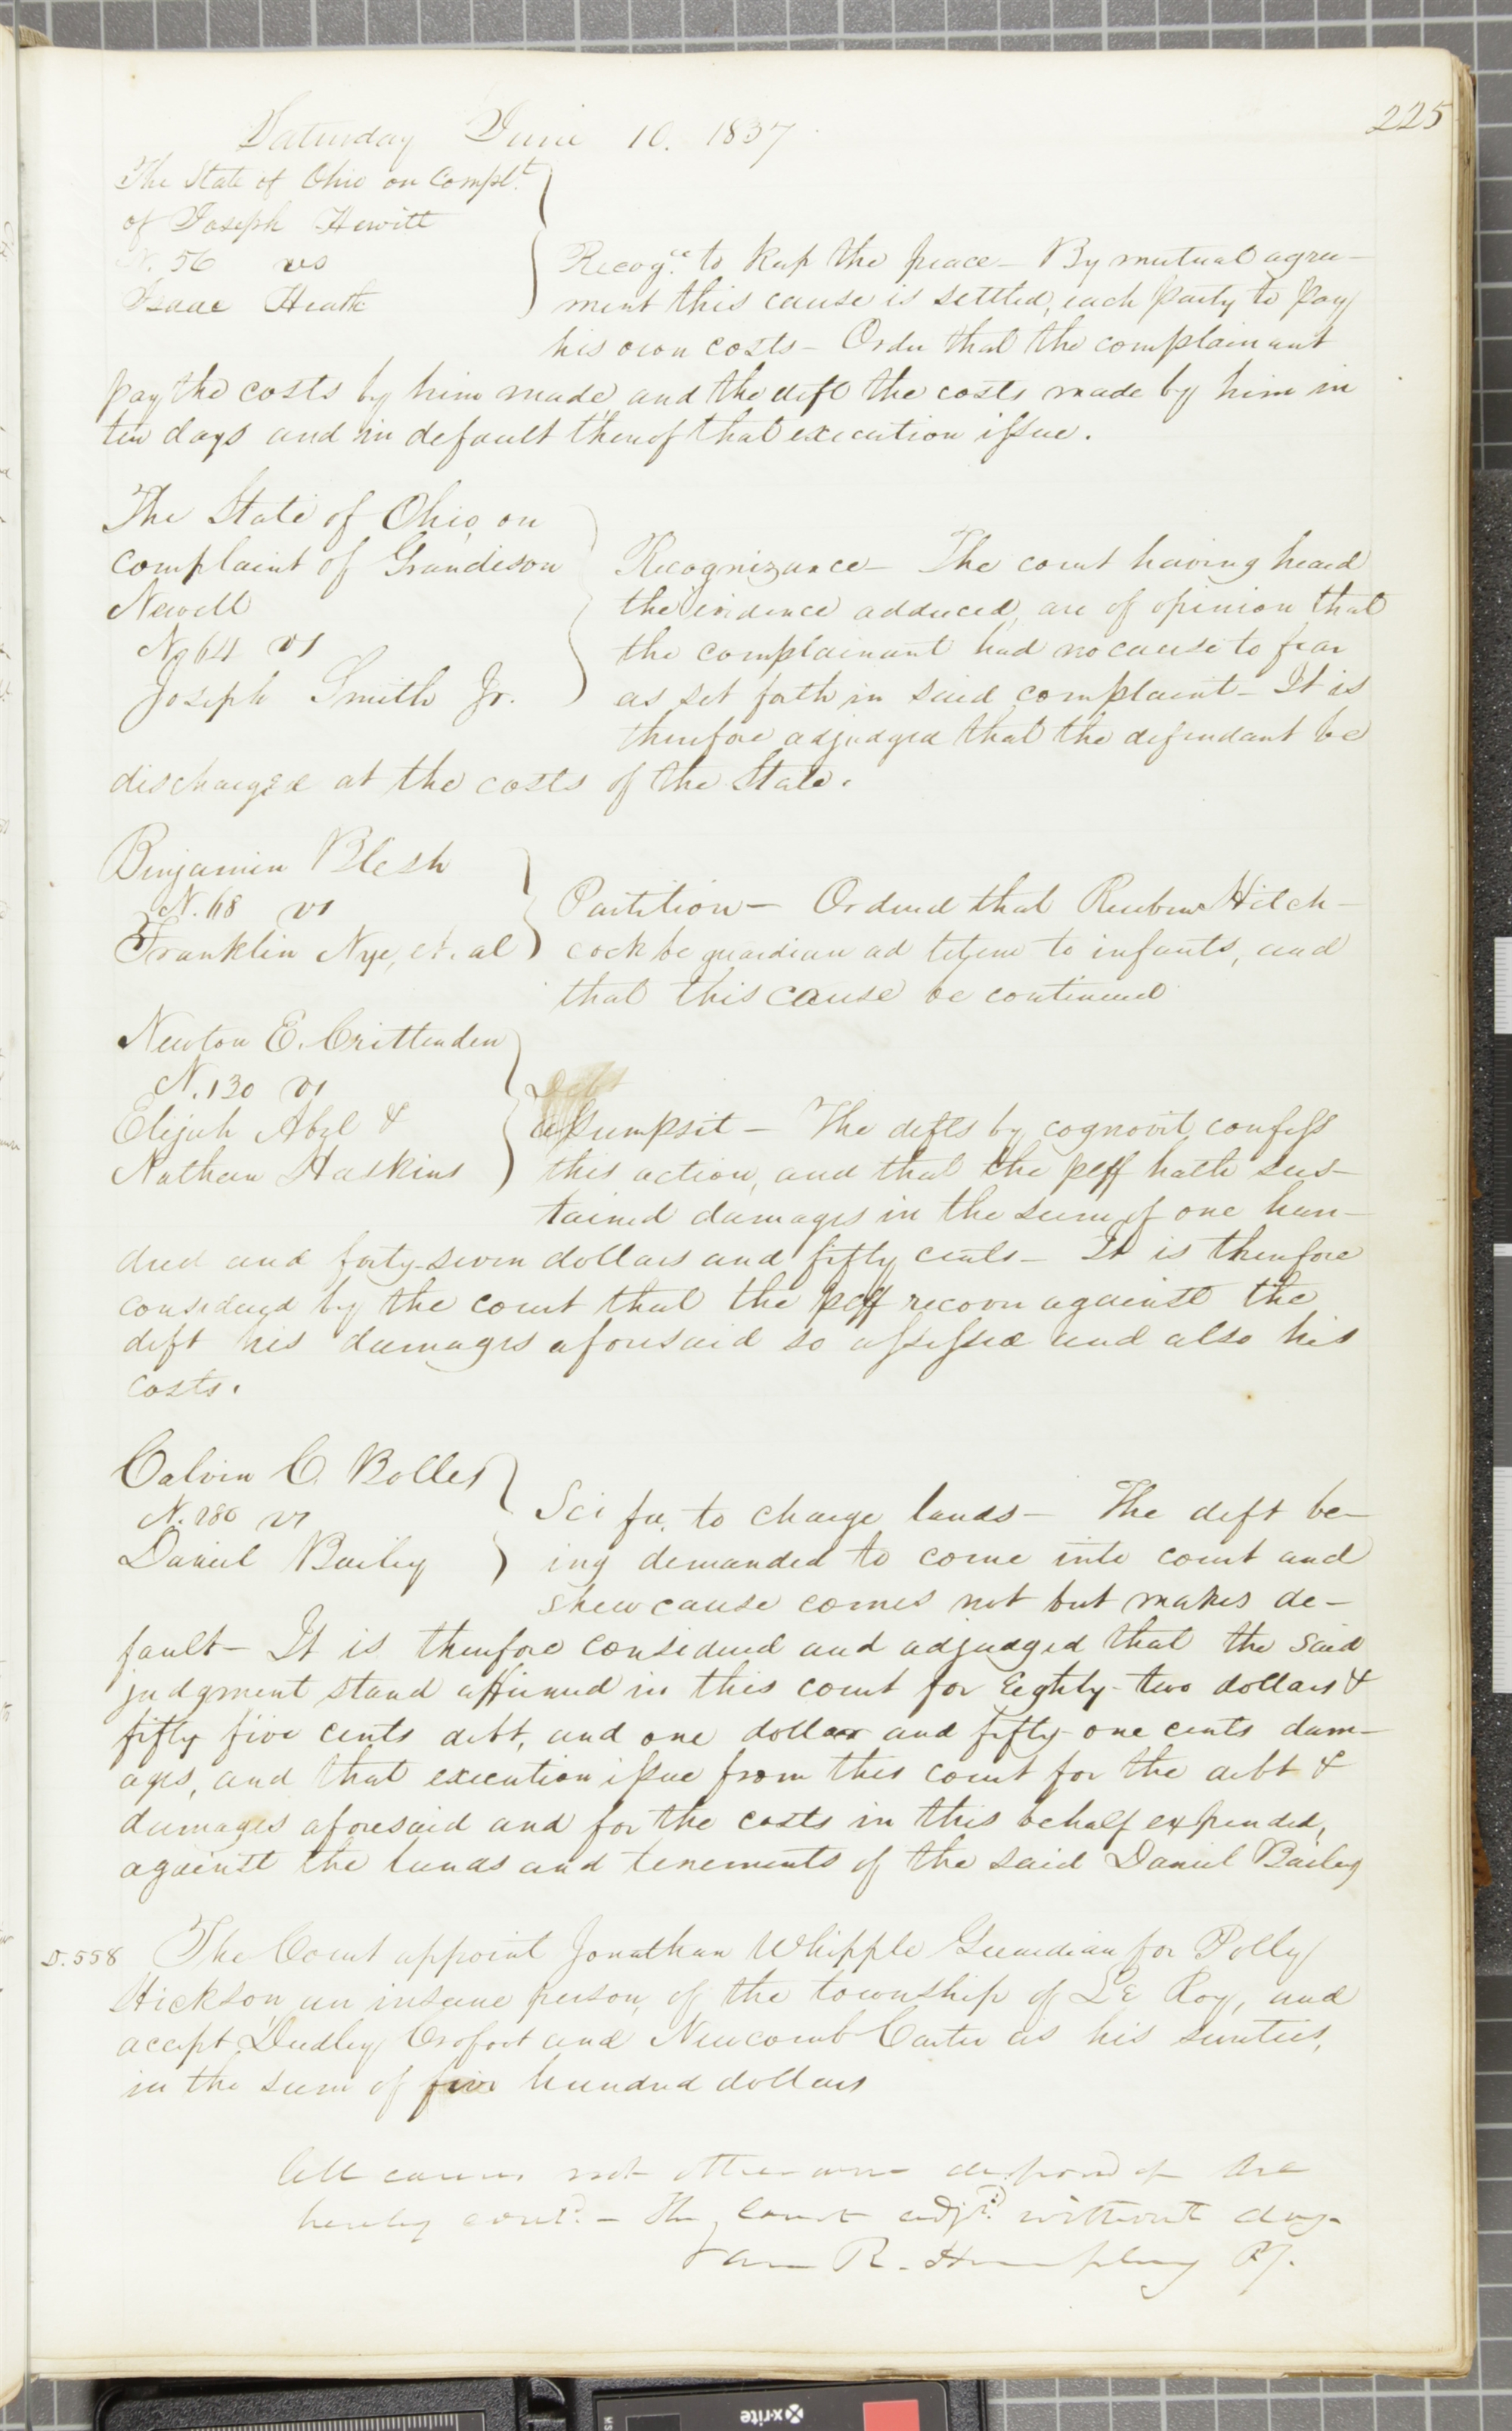 225
Saturday June 10. 1837
The State of Ohio on Complt.
of Joseph Hewitt
N. 56 vs
Isaac Heath
Recogce. to keep the peace - By mutual agree-
ment this cause is settled, each party to pay
his own costs - Order that the complainant
pay the costs by him made, and the deft the costs made by him in
ten days and in default thereof that execution issue.
The State of Ohio, on
complaint of Grandison
Newell
No 64 vs
Joseph Smith Jr.
Recognizance - The court having heard
the evidence adduced, are of opinion that
the complainant had no cause to fear
as set forth in said complaint - It is
therefore adjudged that the defendant be
discharged at the costs of the State.
Benjamin Blish
N. 68 vs
Franklin Nye, et. al
Partition - Ordered that Reuben Hitch-
cock be guardian ad litem to infants, and
that this cause be continued
Newton E. Crittenden
N. 130 vs
Elijah Abel &
Nathan Haskins
Debt
assumpsit - The defts by cognovit confess
this action, and that the plff hath sus-
tained damages in the sum of one hun-
dred and forty-seven dollars and fifty cents - It is therefore
considered by the court that the plff recover against the
deft his damages aforesaid so assessed and also his
costs.
Calvin C. Bolles
N. 280 vs
Daniel Bailey
Sci fa. to charge lands - The deft be-
ing demanded to come into court and
shew cause comes not but makes de-
fault - It is therefore considered and adjudged that the said
judgment stand affirmed in this court for Eighty-two dollars &
fifty five cents debt, and one dollar and fifty-one cents dam-
ages, and that execution issue from this court for the debt &
damages aforesaid and for the costs in this behalf expended,
against the lands and tenements of the said Daniel Bailey
D. 558 The Court appoint Jonathan Whipple Guardian for Polly
Hickson, an insane person, of the township of Le Roy, and
accept Dudley Crofoot and Newcomb Carter as his sureties,
in the sum of five hundred dollars
All causes not otherwise disposed of are
hereby contd. - The court adjd. without day.
Van R. Humphrey PJ.
x-rite